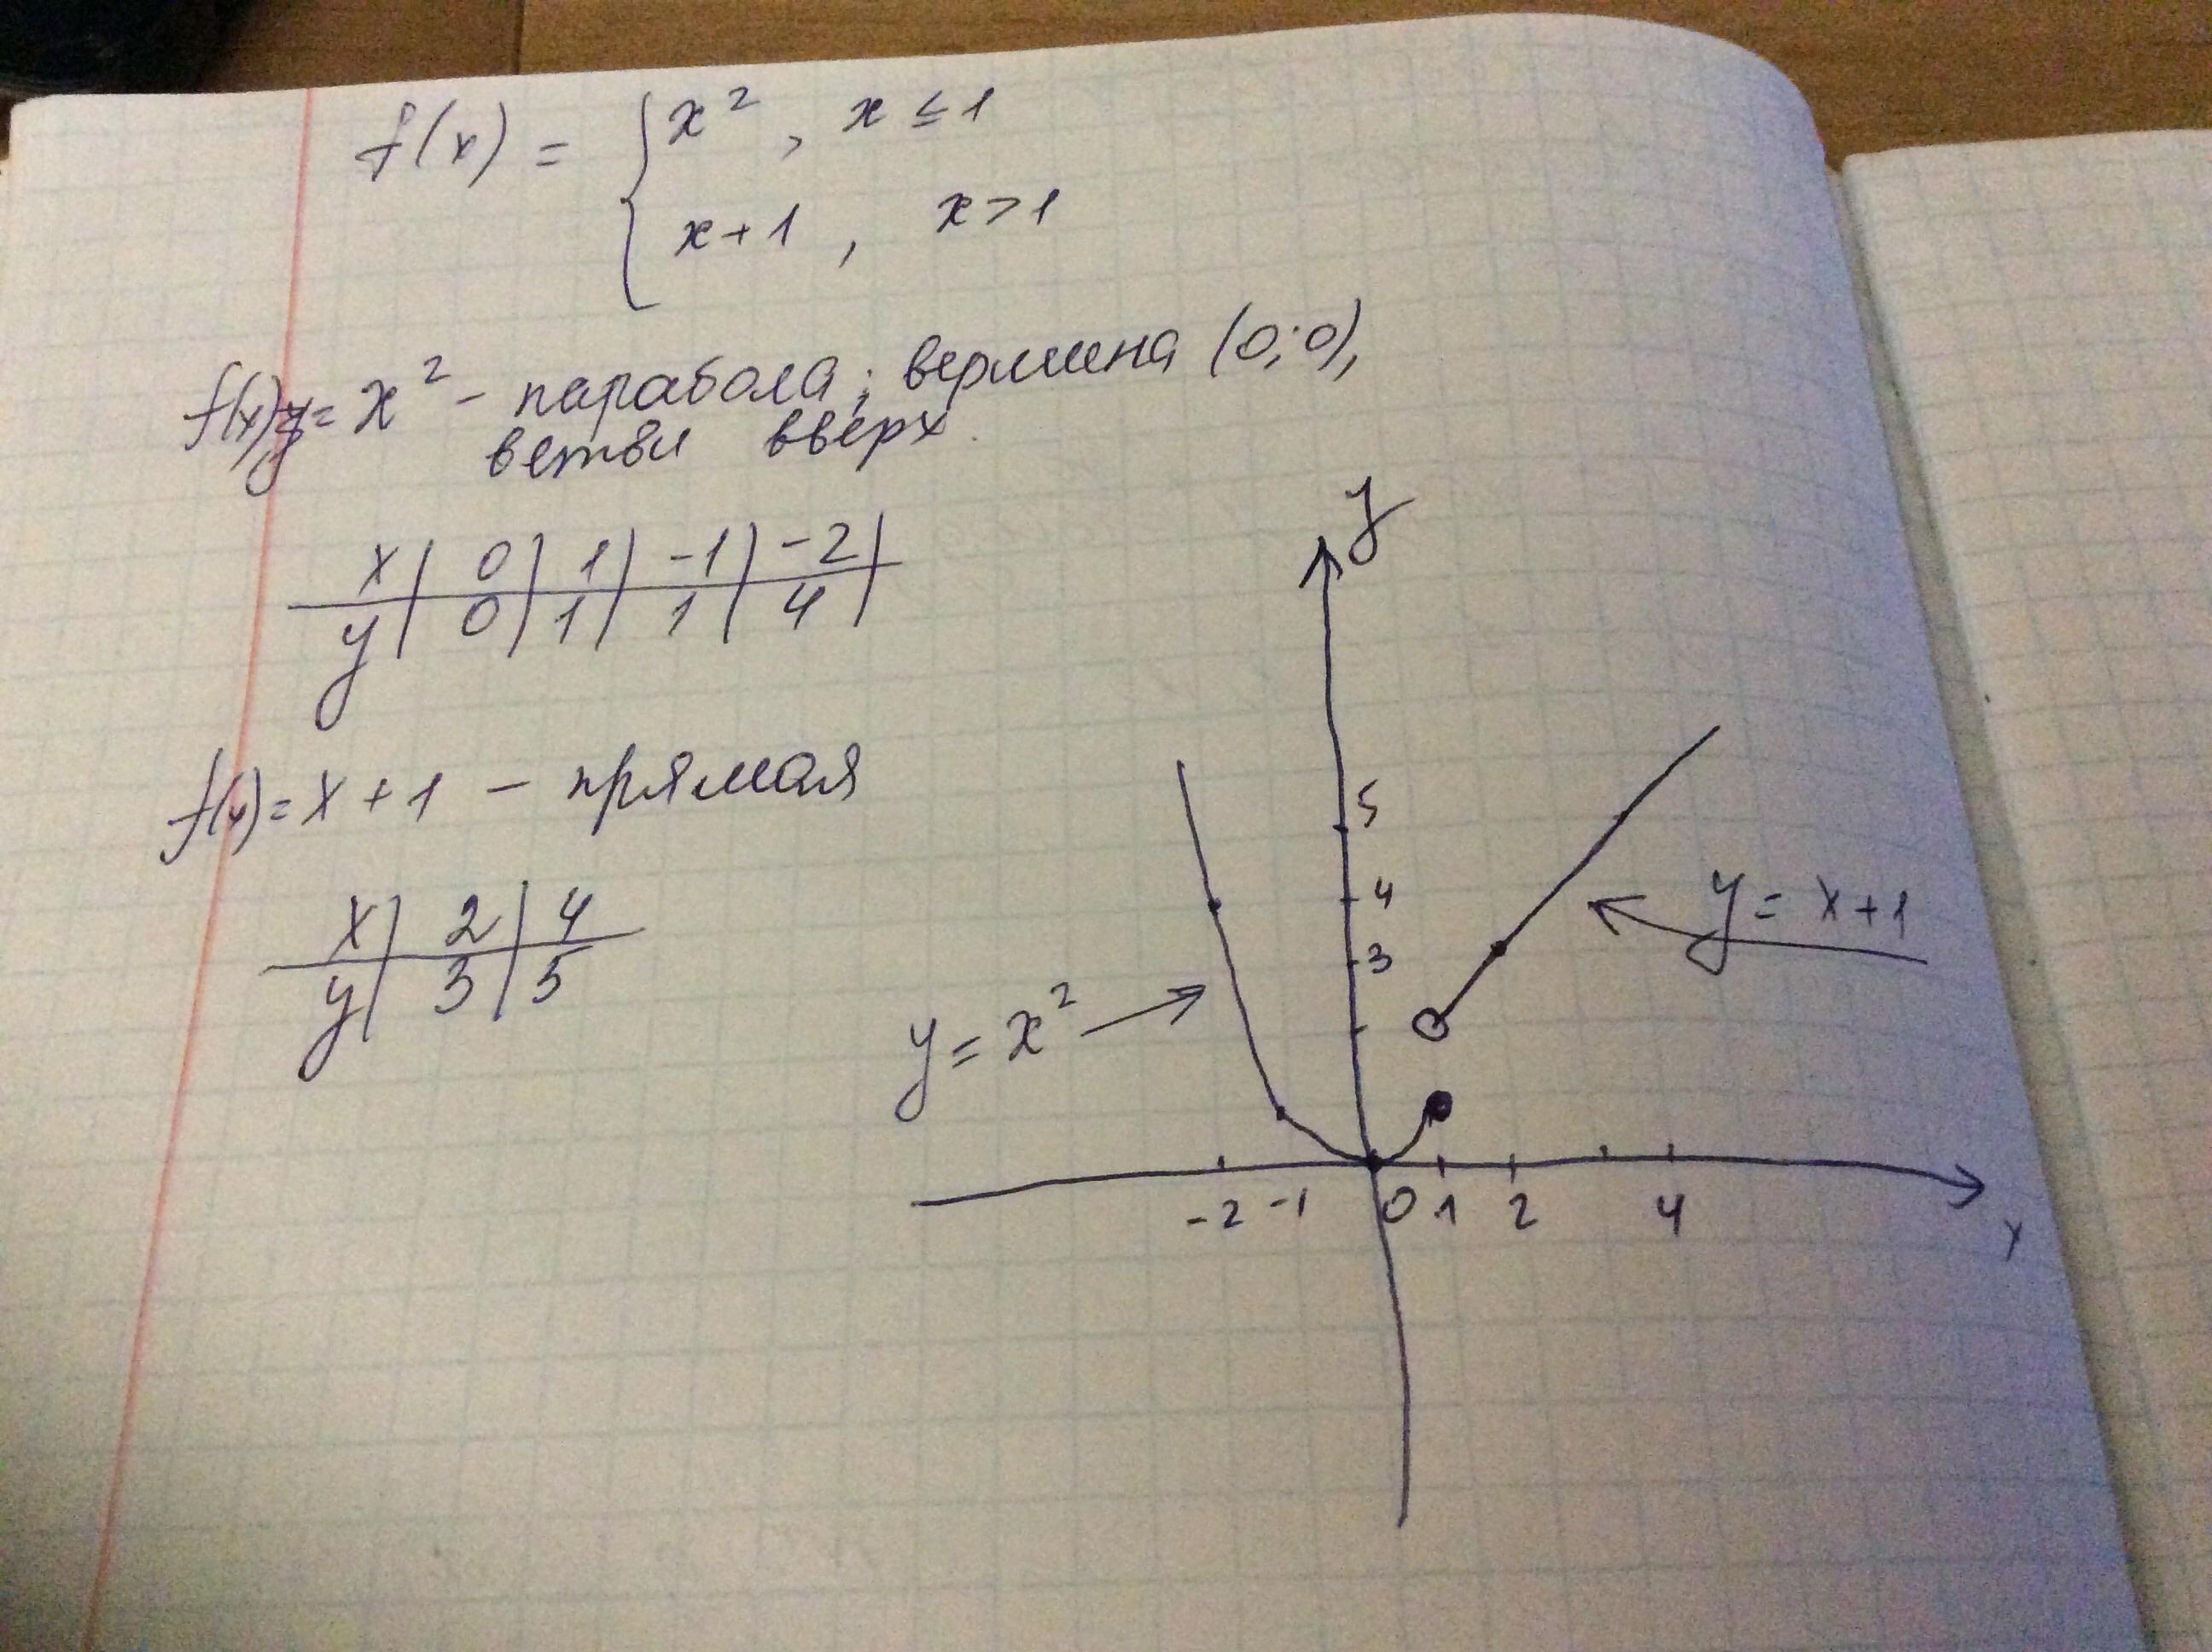 f(x) = { x² , x ≤ 1
x + 1 , x > 1
f(x) = x² - парабола; вершина (0;0),
ветви вверх
x | 0 | 1 | -1 | -2 |
y | 0 | 1 | 1 | 4 |
f(x) = x + 1 - прямая
x | 2 | 4
y | 3 | 5
y
5
4
3
y = x + 1
y = x²
-2 -1 0 1 2 4
x